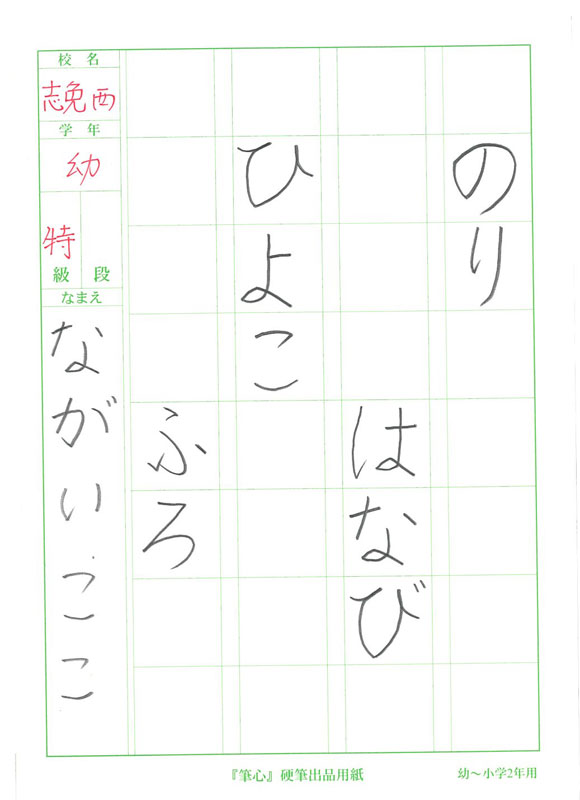 のり
はなび
ひよこ
ふろ
校名
志免西
学年
幼
特
級
段
なまえ
ながいここ
『筆心』硬筆出品用紙
幼〜小学2年用